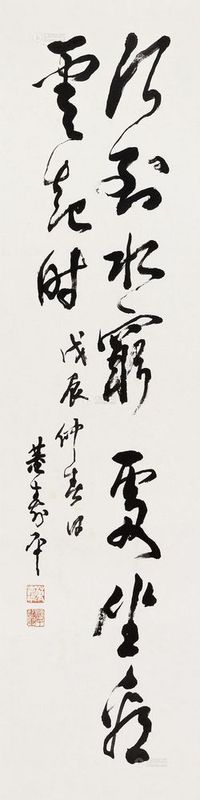 行到水穷处坐看
云起时
戊辰仲春日
董寿平